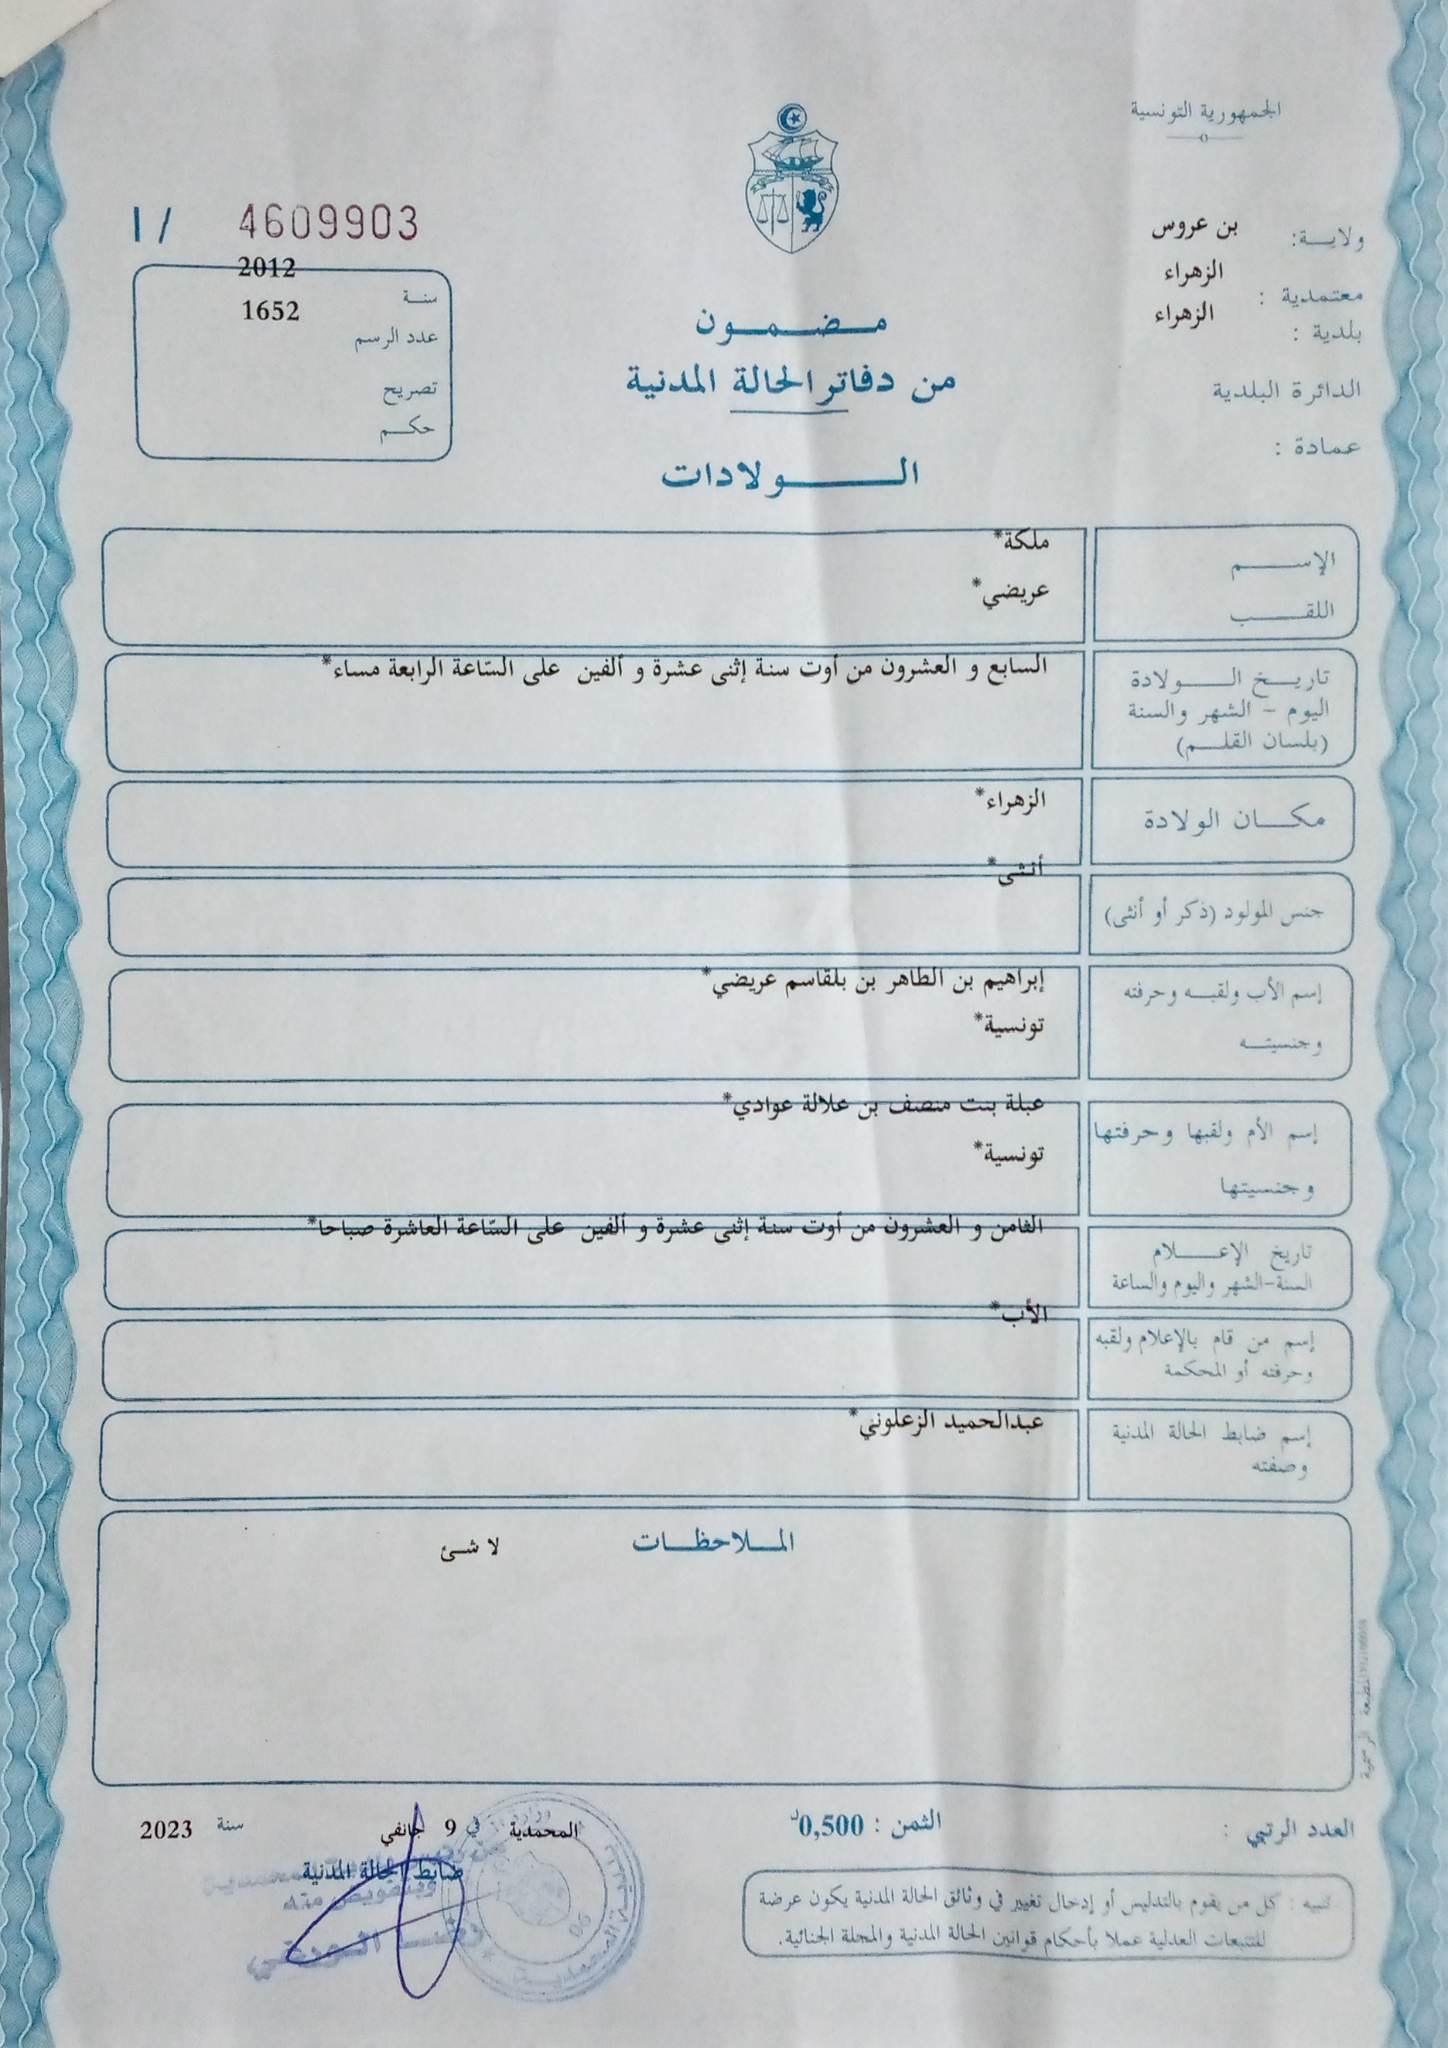 الجمهورية التونسية
ولايـــة: بن عروس
معتمدية : الزهراء
بلدية : الزهراء
الدائرة البلدية
عمادة :
I / 4609903
سنـة 2012
عدد الرسم 1652
تصريح
حكـــم
مــضــمــون
من دفاتر الحالة المدنية
الـــولادات
الإســـم ملكة*
اللقـــب عريضي*
تاريــخ الـــولادة السابع و العشرون من أوت سنة إثنى عشرة و ألفين على السّاعة الرابعة مساء*
اليوم - الشهر والسنة
(بلسان القلـــم)
مكــان الولادة الزهراء*
جنس المولود (ذكر أو أنثى) أنثى*
إسم الأب ولقبـــه وحرفته إبراهيم بن الطاهر بن بلقاسم عريضي*
وجنسيتـــه تونسية*
إسم الأم ولقبها وحرفتها عبلة بنت منصف بن علالة عوادي*
وجنسيتها تونسية*
تاريخ الإعـــلام الثامن و العشرون من أوت سنة إثنى عشرة و ألفين على السّاعة العاشرة صباحا*
السنة-الشهر واليوم والساعة
إسم من قام بالإعلام ولقبه الأب*
وحرفته أو المحكمة
إسم ضابط الحالة المدنية عبدالحميد الزعلوني*
وصفته
المــلاحظــات لا شئ
المطبعة الرسمية
العدد الرتبي :
الثمن : 0,500د
المحمدية في 9 جانفي سنة 2023
ضابط الحالة المدنية
وبتفويض منه
تنبيه : كل من يقوم بالتدليس أو إدخال تغيير في وثائق الحالة المدنية يكون عرضة
للتتبعات العدلية عملا بأحكام قوانين الحالة المدنية والمجلة الجنائية.